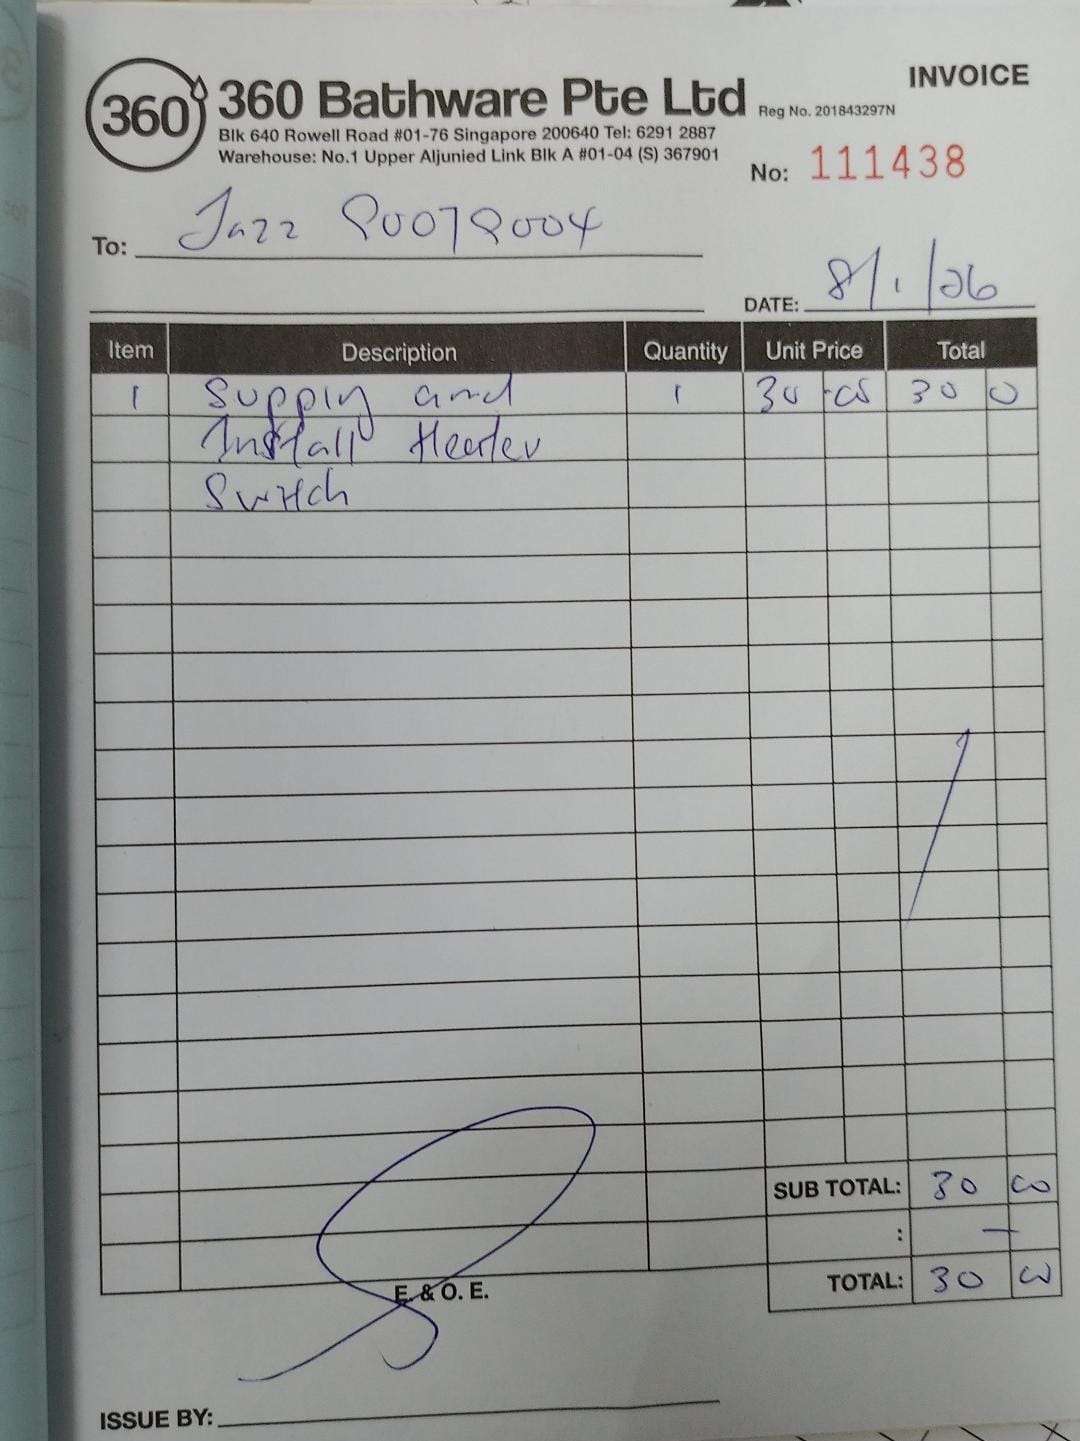 360
360 Bathware Pte Ltd
Reg No. 201843297N
INVOICE
Blk 640 Rowell Road #01-76 Singapore 200640 Tel: 6291 2887
Warehouse: No.1 Upper Aljunied Link Blk A #01-04 (S) 367901
No: 111438
To: Jazz
DATE: 8/1/26
Item Description Quantity Unit Price Total
1 Supply and 1 30 00 30 0
Install Heater
Switch
SUB TOTAL: 30 00
: —
TOTAL: 30 00
E. & O. E.
ISSUE BY: